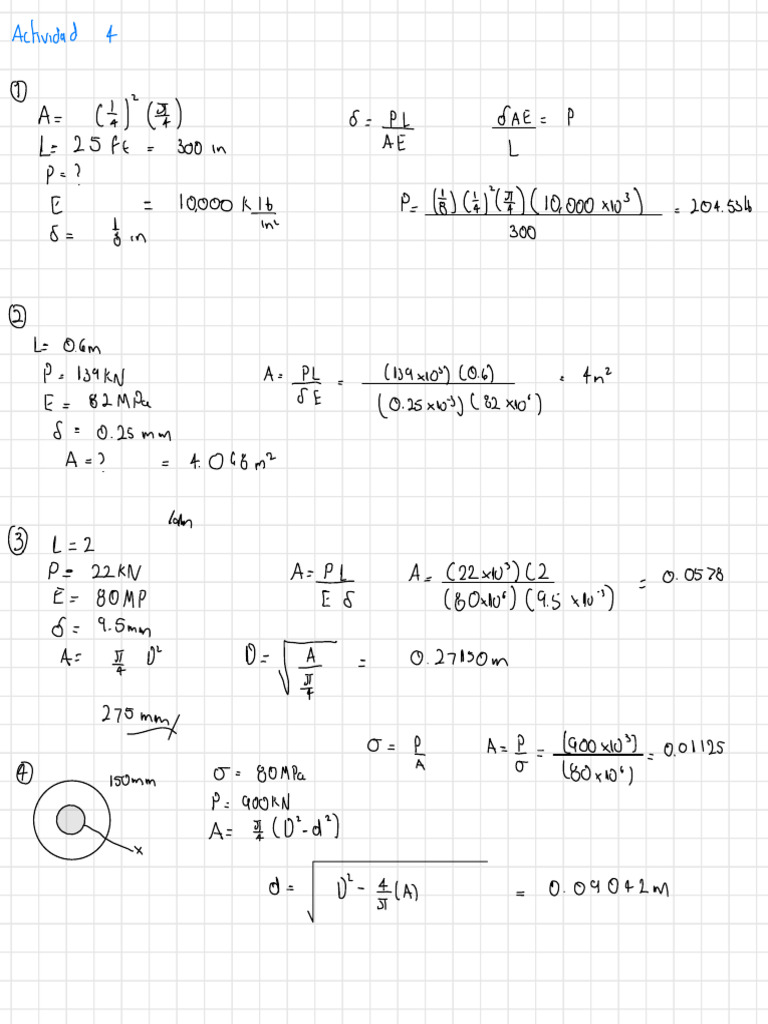 Actividad 4
①
A= (1/4)² (π/4)
L= 25 ft = 300 in
P= ?
E = 10,000 k lb/in²
δ = 1/8 in
δ = PL/AE
δAE/L = P
P= (1/8)(1/4)²(π/4)(10,000 x10³)/300 = 204.53lb
②
L= 0.6m
P= 139KN
E = 82MPa
δ = 0.25 mm
A =? = 4.068m²
A = PL/δE = (139x10³)(0.6)/(0.25x10⁻³)(82x10⁶) = 4m²
③
L=2
P= 22KN
E= 80MP
δ= 9.5mm
A= π/4 D²
A= PL/Eδ
A= (22x10³)(2/(80x10⁶)(9.5 x10⁻³) = 0.0578
D= √(A/(π/4)) = 0.27130m
275mm
④
150mm
x
σ = 80MPa
P= 900KN
A= π/4 (D²-d²)
σ = P/A
A= P/σ = (900x10³)/(80x10⁶) = 0.01125
d = √(D² - 4/π (A)) = 0.09042m